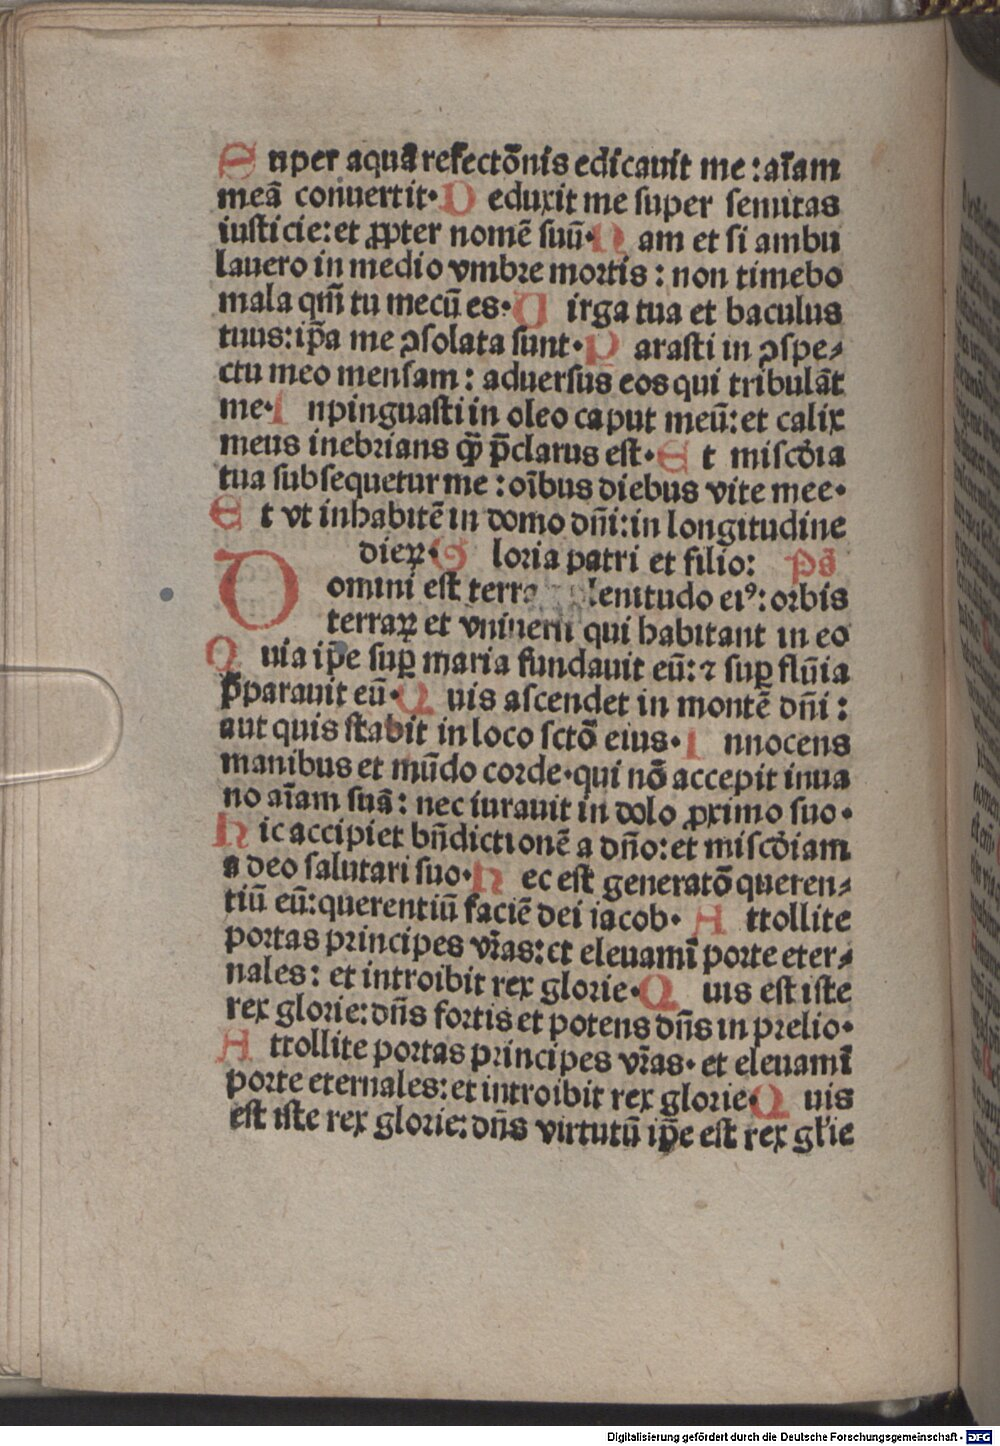 Snper aquā refectōnis edicauit me : aīam
meā conuertit. Deduxit me super semitas
iusticie: et ꝓpter nomē suū. Nam et si ambu
lauero in medio vmbre mortis : non timebo
mala qm̄ tu mecū es. Uirga tua et baculus
tuus: ip̄a me ꝯsolata sunt. Parasti in ꝯspe⸗
ctu meo mensam : aduersus eos qui tribulāt
me. Inpinguasti in oleo caput meū: et calix
meus inebrians q̄ꝫ p̄clarus est. Et miscdia
tua subsequetur me : oībus diebus vite mee.
Et vt inhabitē in domo dn̄i: in longitudine
dieꝝ. Gloria patri et filio: Ps̄
Domini est terra lenitudo eiꝰ: orbis
terraꝝ et vniuersi qui habitant in eo
Quia ip̄e suꝑ maria fundauit eū: ⁊ suꝑ flūia
p̄parauit eū. Quis ascendet in montē dn̄i :
aut quis stabit in loco sctō eius. Innocens
manibus et mūdo corde. qui nō accepit inua
no aīam suā : nec iurauit in dolo ꝓximo suo.
Hic accipiet bn̄dictionē a dn̄o: et miscdiam
a deo salutari suo. Hec est generatō queren⸗
tiū eū: querentiū faciē dei iacob. Attollite
portas principes vr̄as: et eleuamī porte eter⸗
nales : et introibit rex glorie. Quis est iste
rex glorie: dn̄s fortis et potens dn̄s in prelio.
Attollite portas principes vr̄as. et eleuamī
porte eternales: et introibit rex glorie. Quis
est iste rex glorie: dn̄s virtutū ip̄e est rex gl'ie
Digitalisierung gefördert durch die Deutsche Forschungsgemeinschaft - DFG